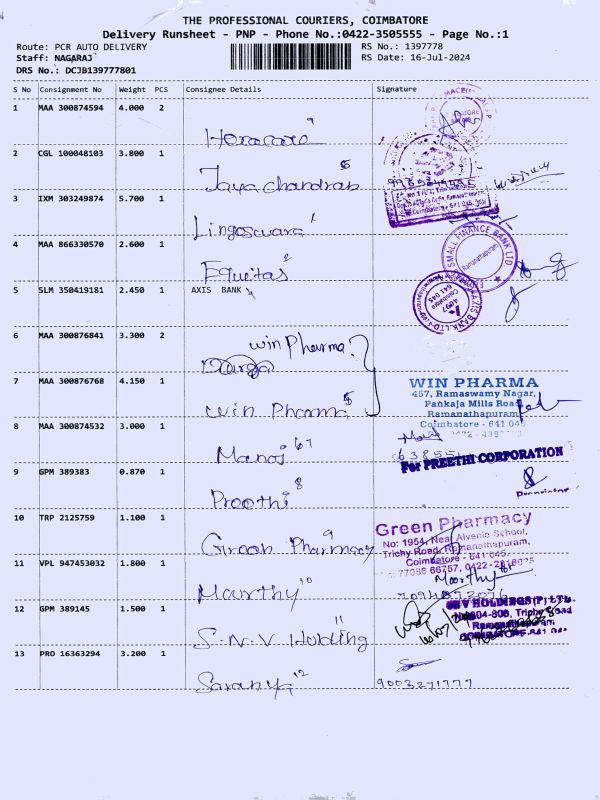 THE PROFESSIONAL COURIERS, COIMBATORE
Delivery Runsheet - PNP - Phone No.:0422-3505555 - Page No.:1
Route: PCR AUTO DELIVERY
RS No.: 1397778
Staff: NAGARAJ
RS Date: 16-Jul-2024
DRS No.: DCJB139777801
S No Consignment No Weight PCS Consignee Details Signature
1 MAA 300874594 4.000 2
2 CGL 100048103 3.800 1 Jaya chandran 5
3 IXM 303249874 5.700 1 Lingeswara
4 MAA 866330570 2.600 1 Equitas 2
SMALL FINANCE BANK LTD
Ramanathapuram
5 SLM 350419181 2.450 1 AXIS BANK
AXIS BANK LTD
4097
Coimbatore
641 045
6 MAA 300876841 3.300 2 win Pharma
Durga
7 MAA 300876768 4.150 1 win Pharma 5
WIN PHARMA
457, Ramaswamy Nagar,
Pankaja Mills Road
Ramanathapuram
Coimbatore - 641 045
8 MAA 300874532 3.000 1 Manoj
For PREETHI CORPORATION
Proprietor
9 GPM 389383 0.870 1 Preethi 8
10 TRP 2125759 1.100 1 Green Pharmacy 9
Green Pharmacy
No: 1954, Near Alvenie School,
Trichy Road, Ramanathapuram,
Coimbatore - 641 045.
77088 66757, 0422-2316925
11 VPL 947453032 1.800 1 Maurthy 10
Moorthy
12 GPM 389145 1.500 1 S.N.V Holding 11
SNV HOLDINGS (P) LTD.
Ramanathapuram
13 PRO 16363294 3.200 1 Saranya 12
9003271777